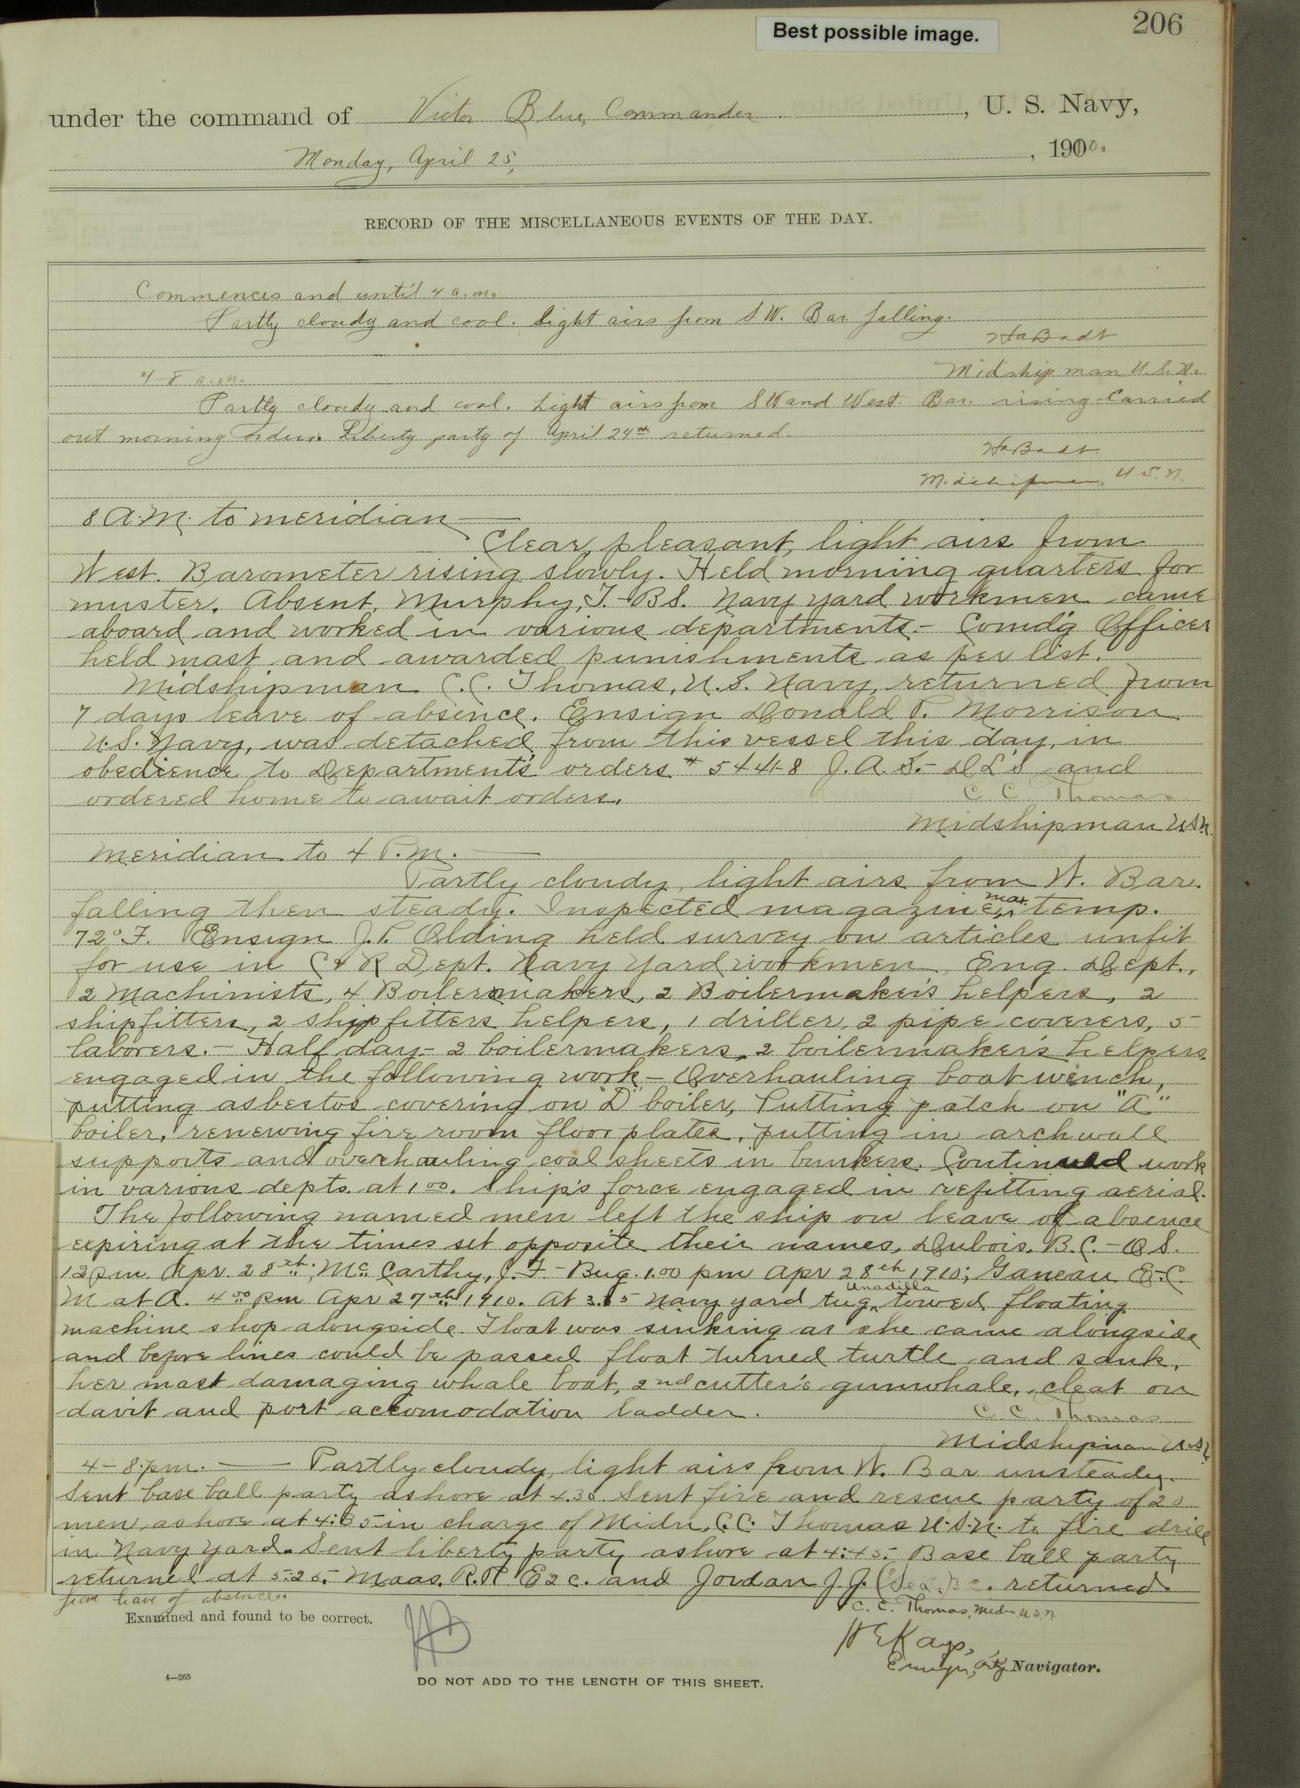 Best possible image.
206
under the command of Victor Blue, Commander, U. S. Navy,
Monday, April 25, , 1910.
RECORD OF THE MISCELLANEOUS EVENTS OF THE DAY.
Commences and until 4 a.m.
Partly cloudy and cool. Light airs from SW. Bar falling.
HaBadt
Midshipman U.S.N.
4-8 a.m.
Partly cloudy and cool. Light airs from SW and West. Bar. rising. Carried
out morning orders. Liberty party of April 24th returned.
HaBadt
Midshipman, U.S.N.
8 A.M. to meridian —
Clear, pleasant, light airs from
West. Barometer rising slowly. Held morning quarters for
muster. Absent, Murphy, T.-B.S. Navy Yard workmen came
aboard and worked in various departments.- Comd'g Officer
held mast and awarded punishments as per list.
Midshipman C.C. Thomas, U.S. Navy, returned from
7 days leave of absence. Ensign Donald P. Morrison
U.S. Navy, was detached from this vessel this day, in
obedience to Department's orders # 5448 J.A.S.- DL'S and
ordered home to await orders.
C. C. Thomas
Midshipman U.S.N.
Meridian to 4 P.M. —
Partly cloudy, light airs from W. Bar.
falling then steady. Inspected magazines, max. temp.
72° F. Ensign J.P. Olding held survey on articles unfit
for use in C & R Dept. Navy Yard workmen, Eng. Dept.,
2 Machinists, 4 Boilermakers, 2 Boilermaker's helpers, 2
shipfitters, 2 shipfitters helpers, 1 driller, 2 pipe coverers, 5
laborers.- Half day- 2 boilermakers, 2 boilermaker's helpers
engaged in the following work - Overhauling boat winch,
putting asbestos covering on "D" boiler, Putting patch on "A"
boiler, renewing fire room floor plates, putting in arch wall
supports and overhauling coal sheets in bunkers. Continued work
in various depts. at 1 00. Ship's force engaged in refitting aerial.
The following named men left the ship on leave of absence
expiring at the times set opposite their names, Dubois, B.C.-O.S.
12 pm. Apr. 28th; McCarthy, J.F.- Bug. 1.00 pm Apr 28th 1910; Ganeau E.C.
M at A. 4 00 pm Apr 27th 1910. At 3.35 Navy yard tug Unadilla towed floating
machine shop alongside. Float was sinking as she came alongside
and before lines could be passed float turned turtle and sank,
her mast damaging whale boat, 2nd cutter's gunwhale, cleat on
davit and port accomodation ladder.
C. C. Thomas
Midshipman U.S.N.
4-8 pm. — Partly cloudy, light airs from W. Bar unsteady.
Sent base ball party ashore at 4.30 Sent fire and rescue party of 20
men ashore at 4:35 in charge of Midn. C.C. Thomas U.S.N. to fire drill
in Navy Yard. Sent liberty party ashore at 4:45. Base ball party
returned at 5:25. Maas, R.R E2c. and Jordan J.J. (Sea.) returned
from leave of absence.
C. C. Thomas, Midn U.S.N
Examined and found to be correct.
H E Kays,
Ensign, Navigator.
4—265
DO NOT ADD TO THE LENGTH OF THIS SHEET.